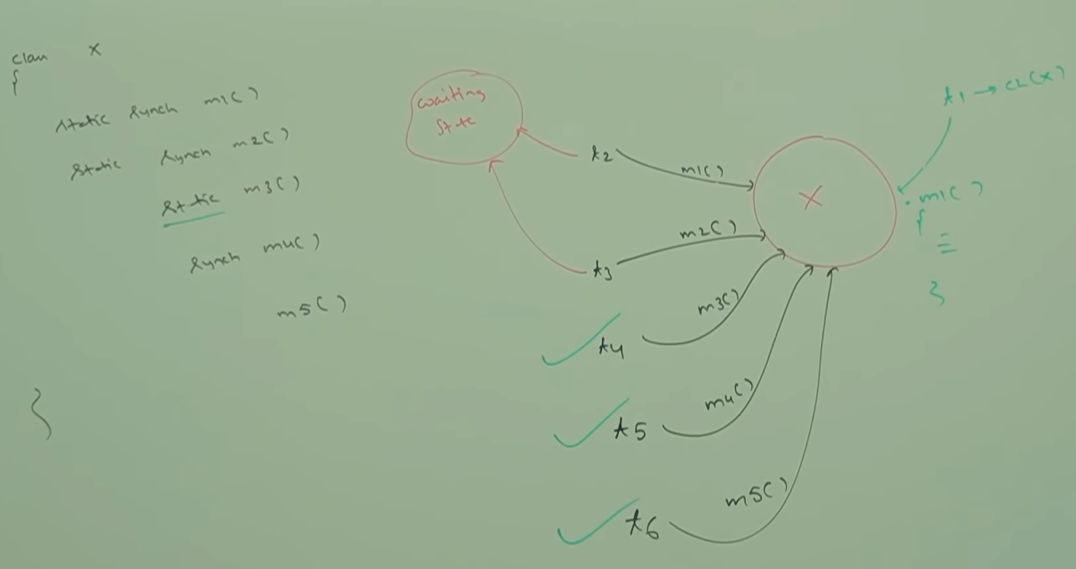 class X
{
static synch m1()
static synch m2()
static m3()
synch m4()
m5()
}
waiting
state
t2
m1()
t3
m2()
t4
m3()
t5
m4()
t6
m5()
X
t1 → CL(X)
m1()
{
}